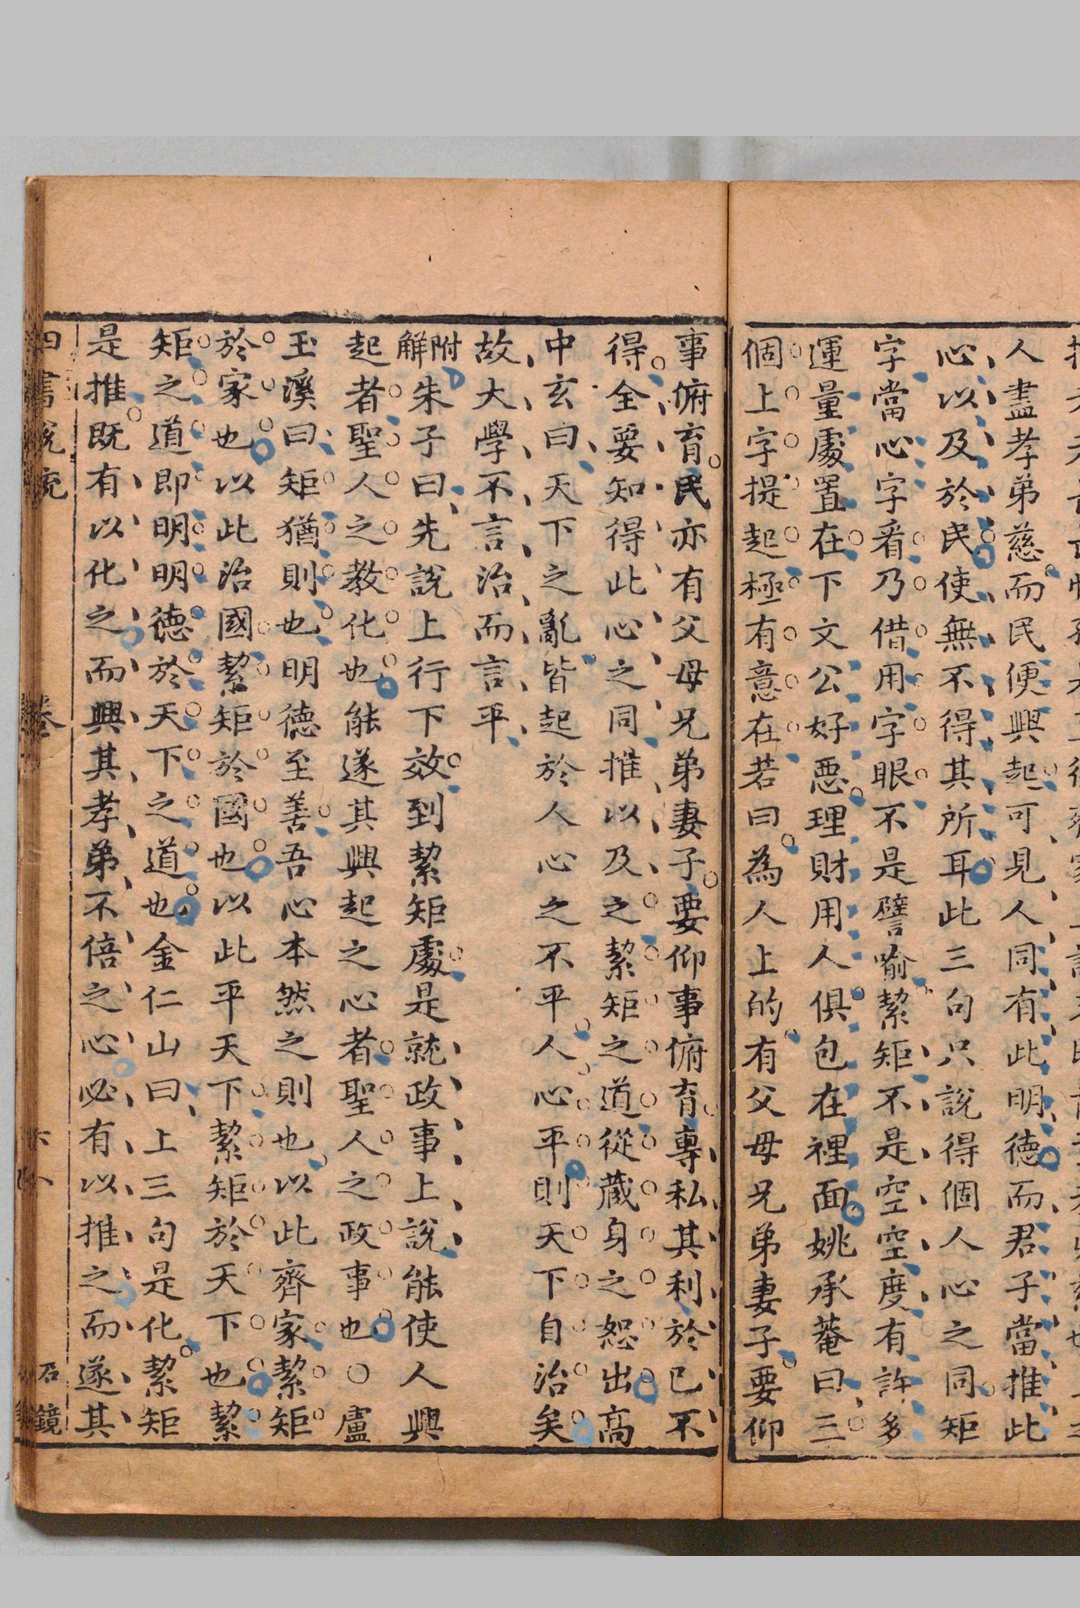 人盡孝弟慈而民便興起可見人同有此明德而君子當推此
心以及於民使無不得其所耳此三句只說得個人心之同矩
字當心字看乃借用字眼不是譬喻絜矩不是空空度有許多
運量處置在下文公好惡理財用人俱包在裡面姚承菴曰三
個上字提起極有意在若曰為人上的有父母兄弟妻子要仰
事俯育民亦有父母兄弟妻子要仰事俯育專私其利於已不
得全要知得此心之同推以及之絜矩之道從藏身之恕出高
中玄曰天下之亂皆起於人心之不平人心平則天下自治矣
故大學不言治而言平
附解朱子曰先說上行下效到絜矩處是就政事上說能使人興
起者聖人之教化也能遂其興起之心者聖人之政事也○盧
玉溪曰矩猶則也明德至善吾心本然之則也以此齊家絜矩
於家也以此治國絜矩於國也以此平天下絜矩於天下也絜
矩之道即明明德於天下之道也金仁山曰上三句是化絜矩
是推既有以化之而興其孝弟不倍之心必有以推之而遂其
四書說統
卷
石鏡